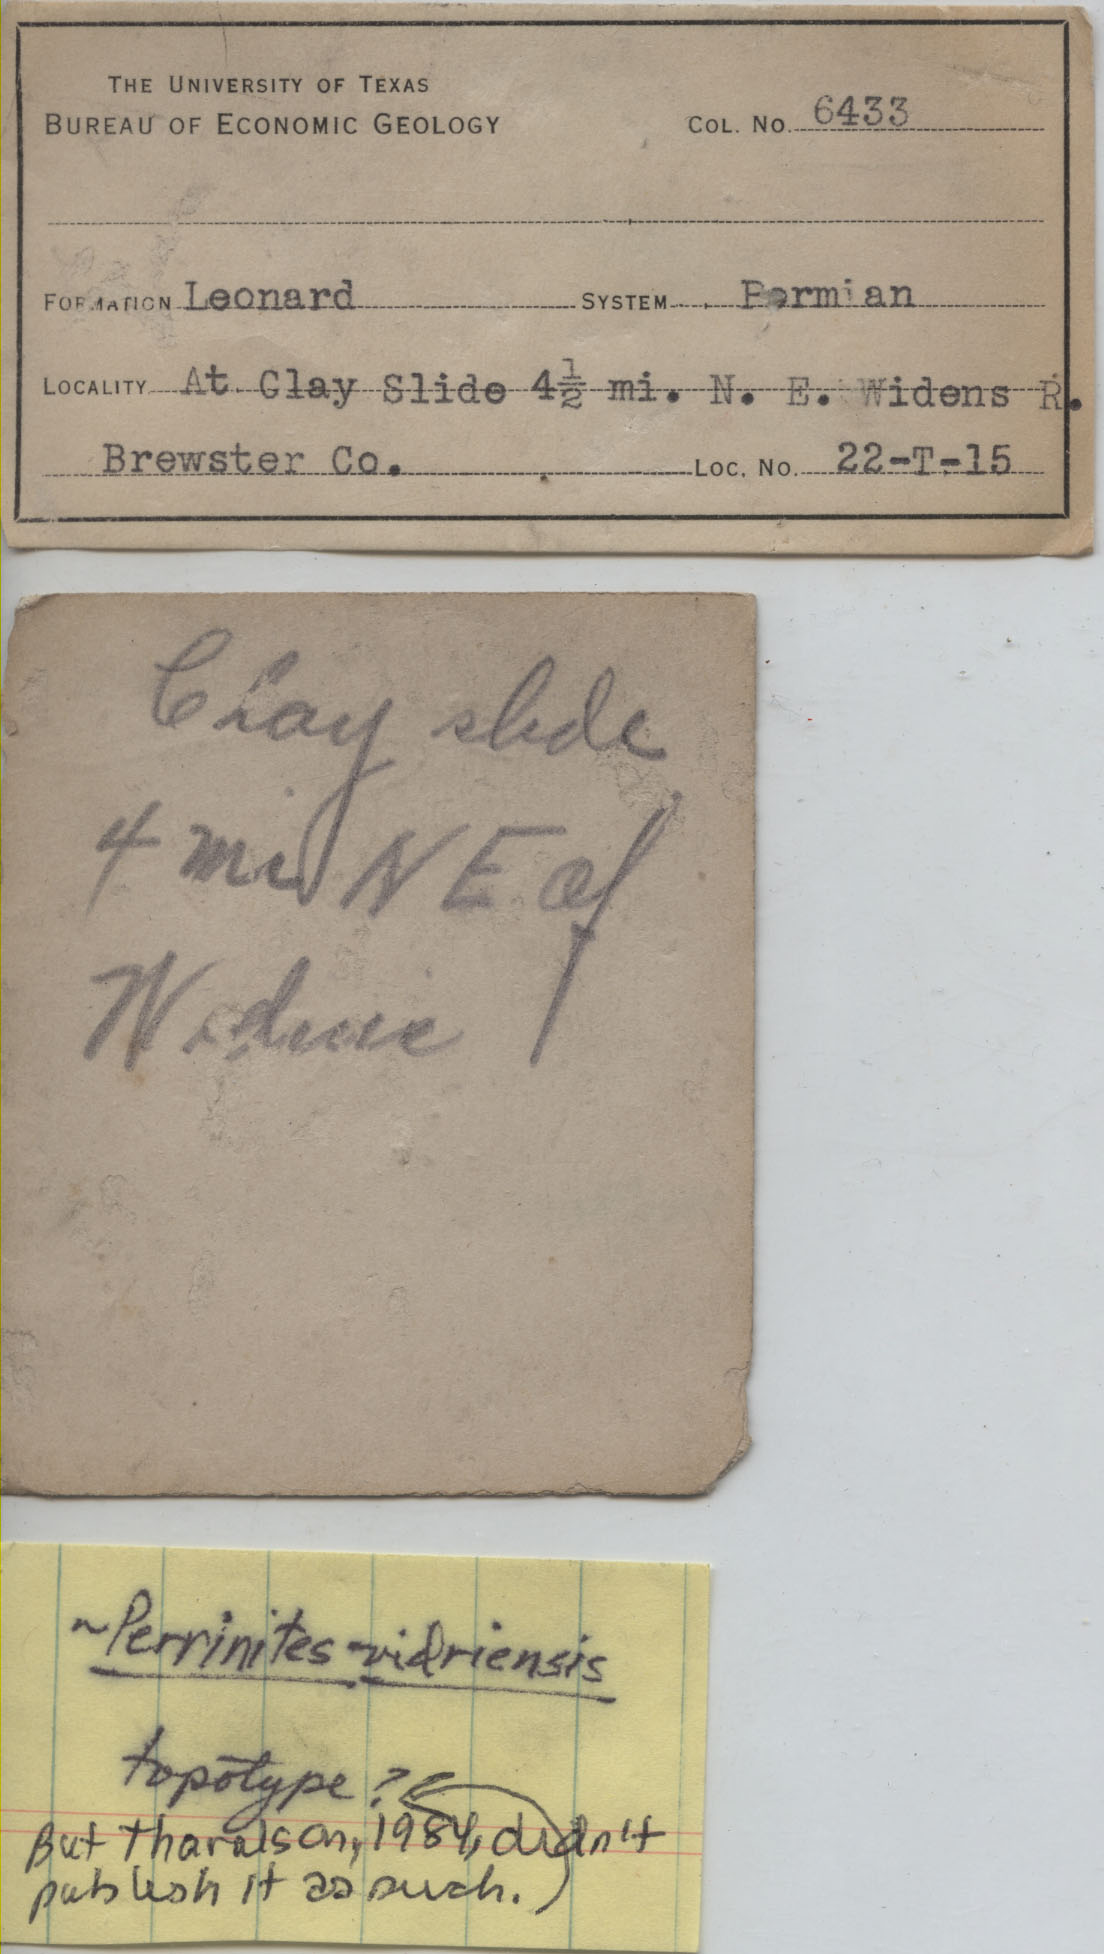 THE UNIVERSITY OF TEXAS
BUREAU OF ECONOMIC GEOLOGY
COL. NO. 6433
FORMATION Leonard SYSTEM Permian
LOCALITY At Clay Slide 4½ mi. N. E. Widens R.
Brewster Co. LOC. NO. 22-T-15
Clay slide
4 mi N E of
~Perrinites vidriensis
topotype?
But Tharalson, 1984, didn't
publish it as such.)